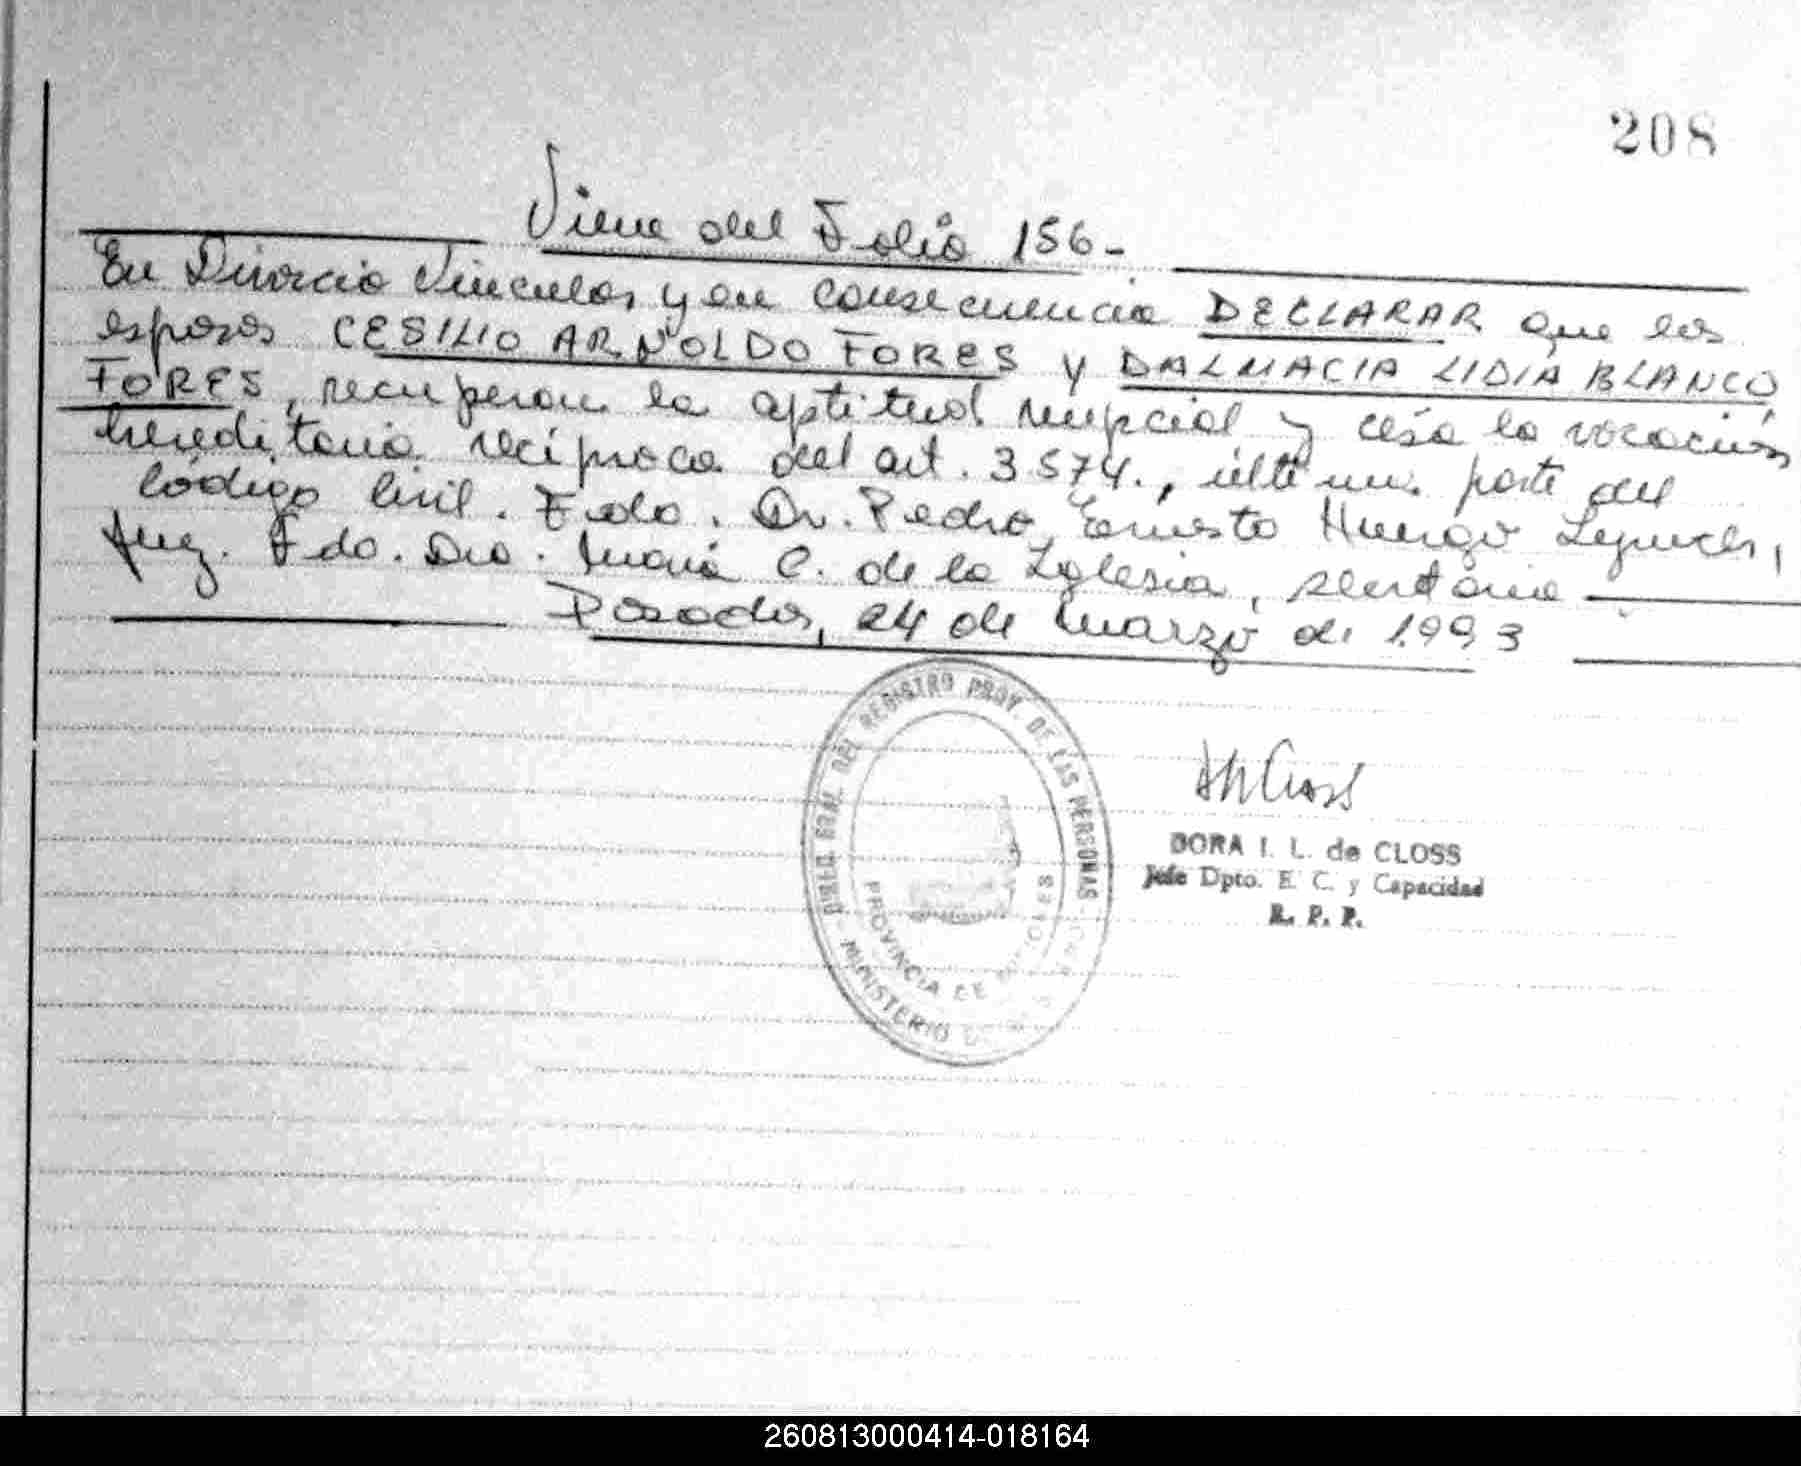 208
Viene del Folio 156-
En Divorcio Vincular, y en consecuencia DECLARAR que los
esposos CESILIO ARNOLDO FORES y DALMACIA LIDIA BLANCO
FORES, recuperan la aptitud nupcial y cesa la vocación
hereditaria recíproca del art. 3574., última parte del
Código Civil. Fdo. Dr. Pedro Ernesto Huergo
Juez. Fdo. Dra. María C. de la Iglesia, secretaria
Posadas, 24 de Marzo de 1.993
DIREC. GRAL. DEL REGISTRO PROV. DE LAS PERSONAS
MINISTERIO
PROVINCIA DE MISIONES
DORA I. L. de CLOSS
Jefe Dpto. E. C. y Capacidad
R. P. P.
260813000414-018164